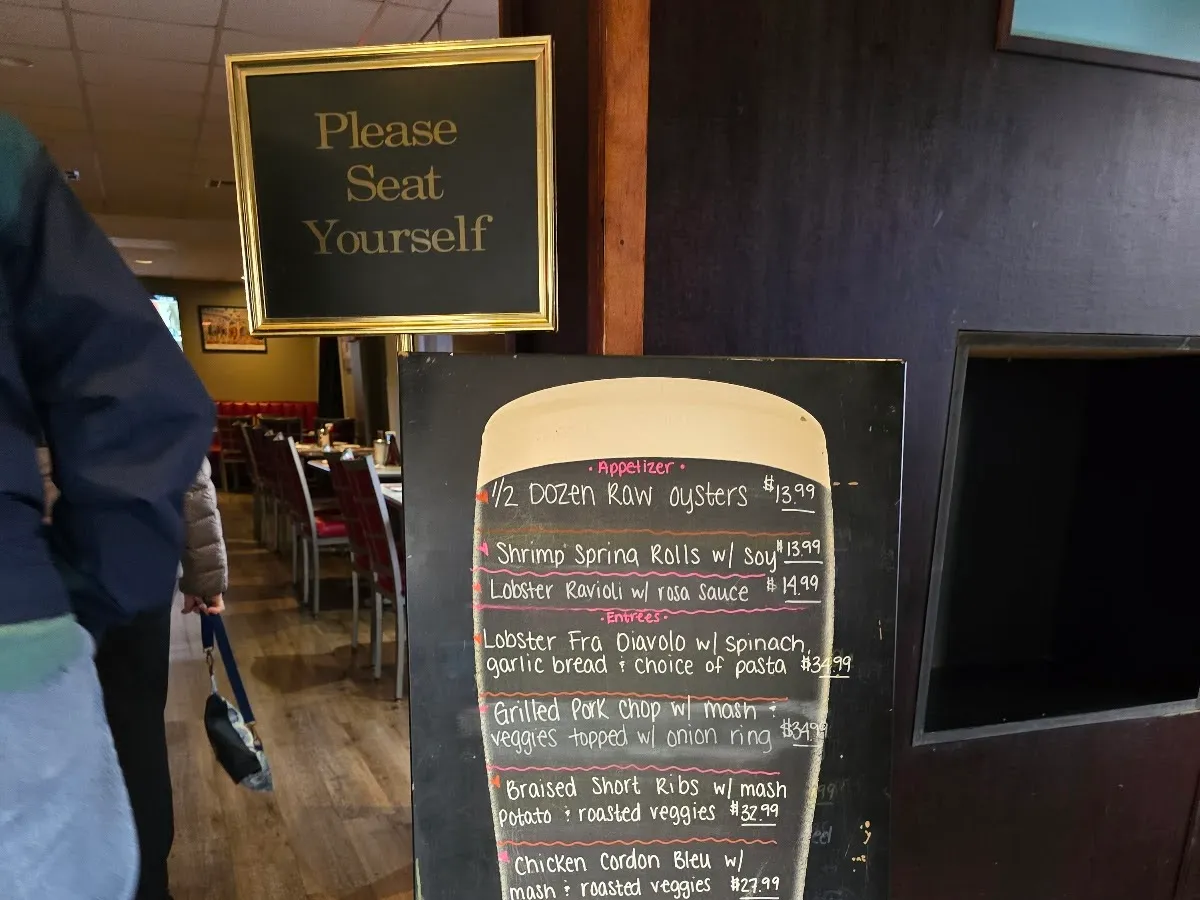 Please
Seat
Yourself
· Appetizer ·
1/2 Dozen Raw oysters $13.99
Shrimp Spring Rolls w/ soy $13.99
Lobster Ravioli w/ rosa sauce $14.99
· Entrees ·
Lobster Fra Diavolo w/ spinach,
garlic bread & choice of pasta $34.99
Grilled Pork Chop w/ mash &
veggies topped w/ onion ring $34.99
Braised Short Ribs w/ mash
potato & roasted veggies $32.99
Chicken Cordon Bleu w/
mash & roasted veggies $27.99